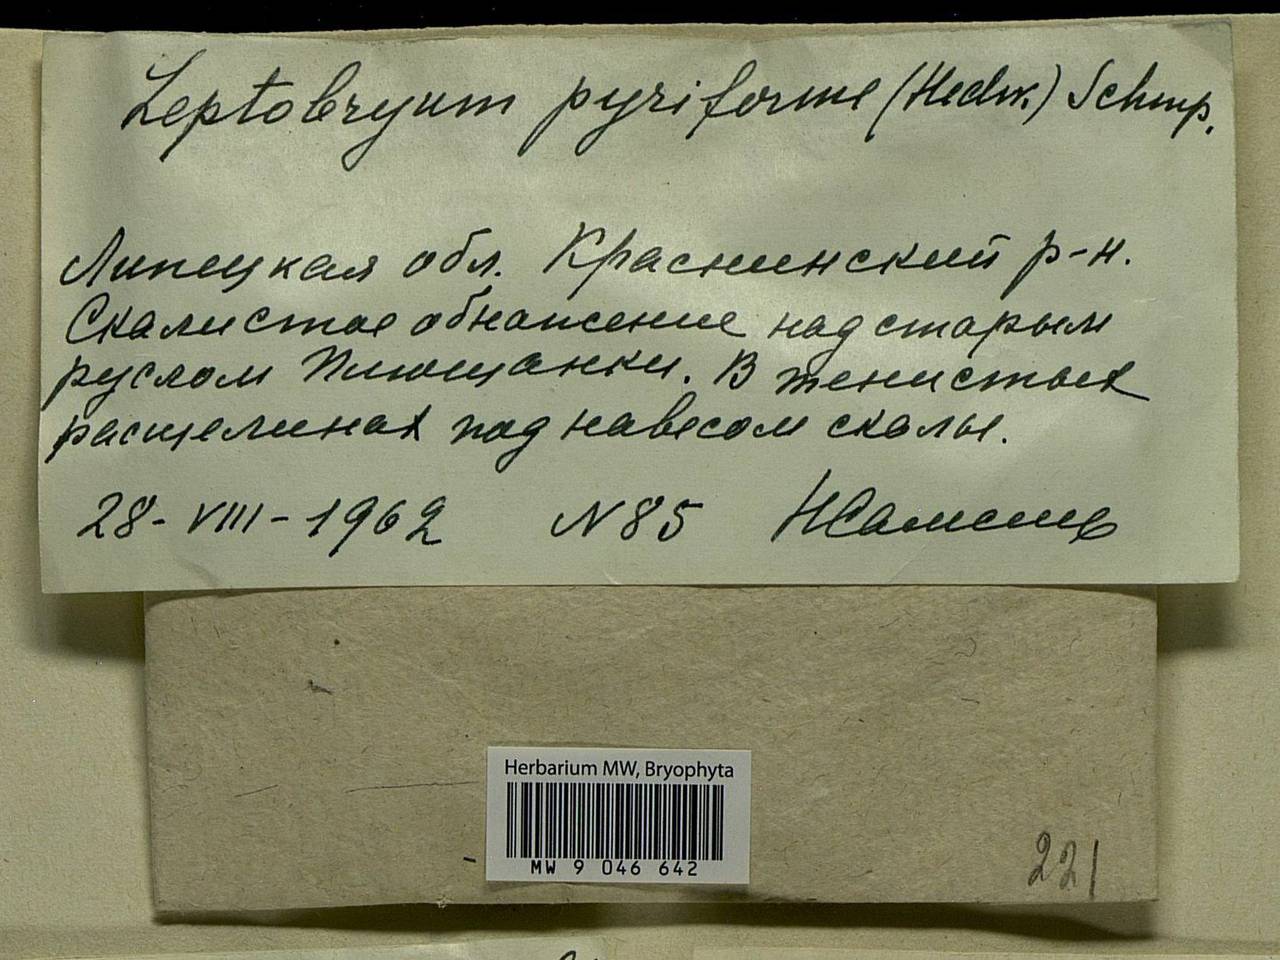 Leptobryum pyriforme (Hedw.) Schmp.
Липецкая обл. Краснинский р-н.
Скалистое обнажение над старым
руслом Плющанки. В тенистых
расщелинах под навесом скалы.
28-VIII-1962 N85
Herbarium MW, Bryophyta
MW 9 046 642
221